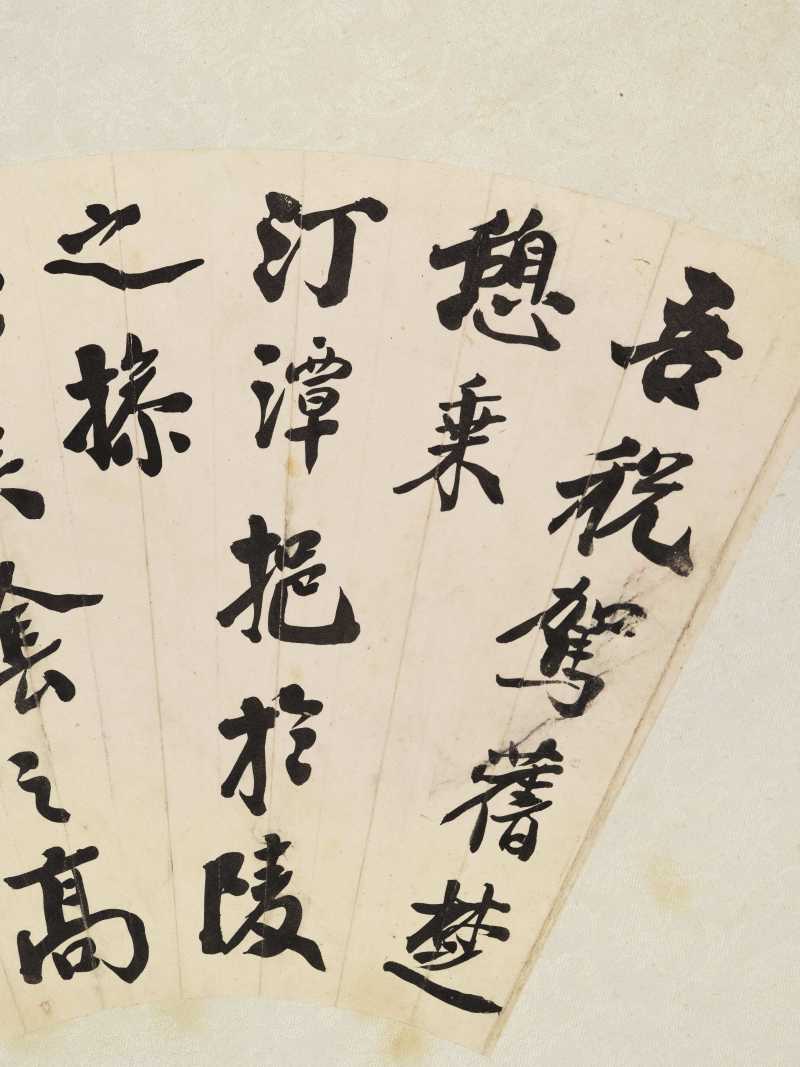 吾稅駕舊楚
憩乘
汀潭挹於陵
之操
之高